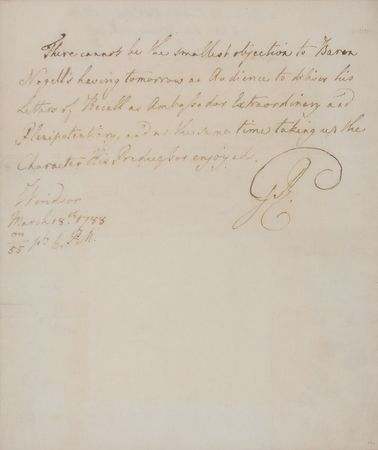 There cannot be the smallest objection to Baron
Nagell's having tomorrow an Audience to deliver his
Letters of Recall as Ambassador Extraordinary and
Plenipotentiary, and at the same time taking up the
Character His Predecessor enjoyed.
GR.
Windsor
March 18th 1788
m
55 pt 6. P.M.